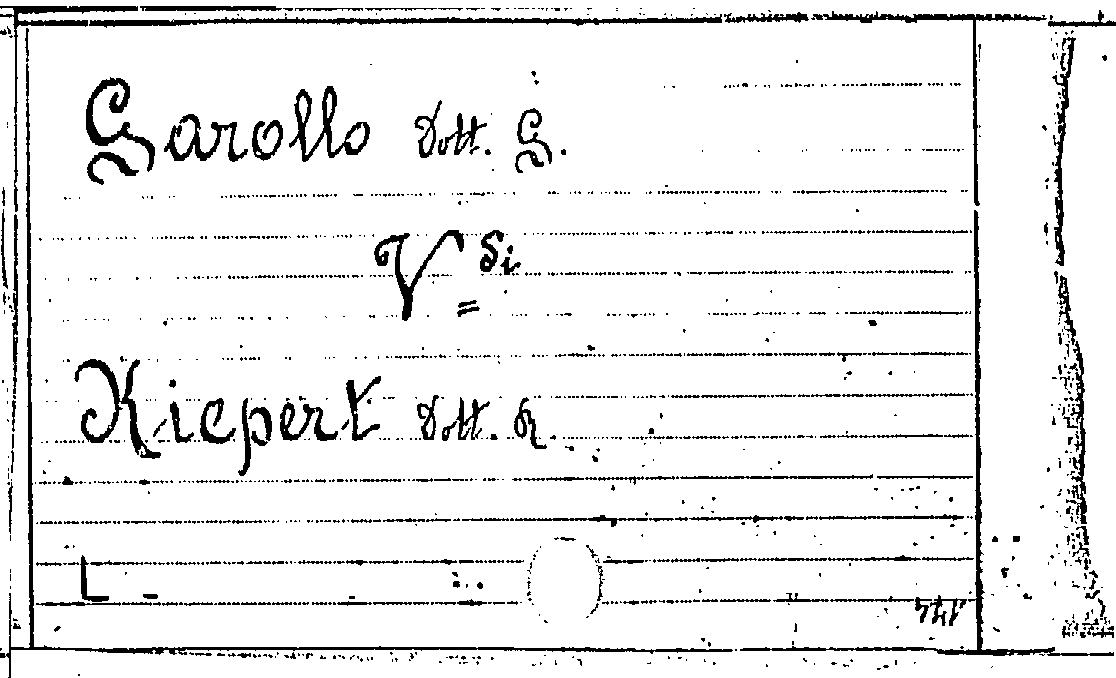 Garollo Dott. G.
V di
Kiepert Dott. R.